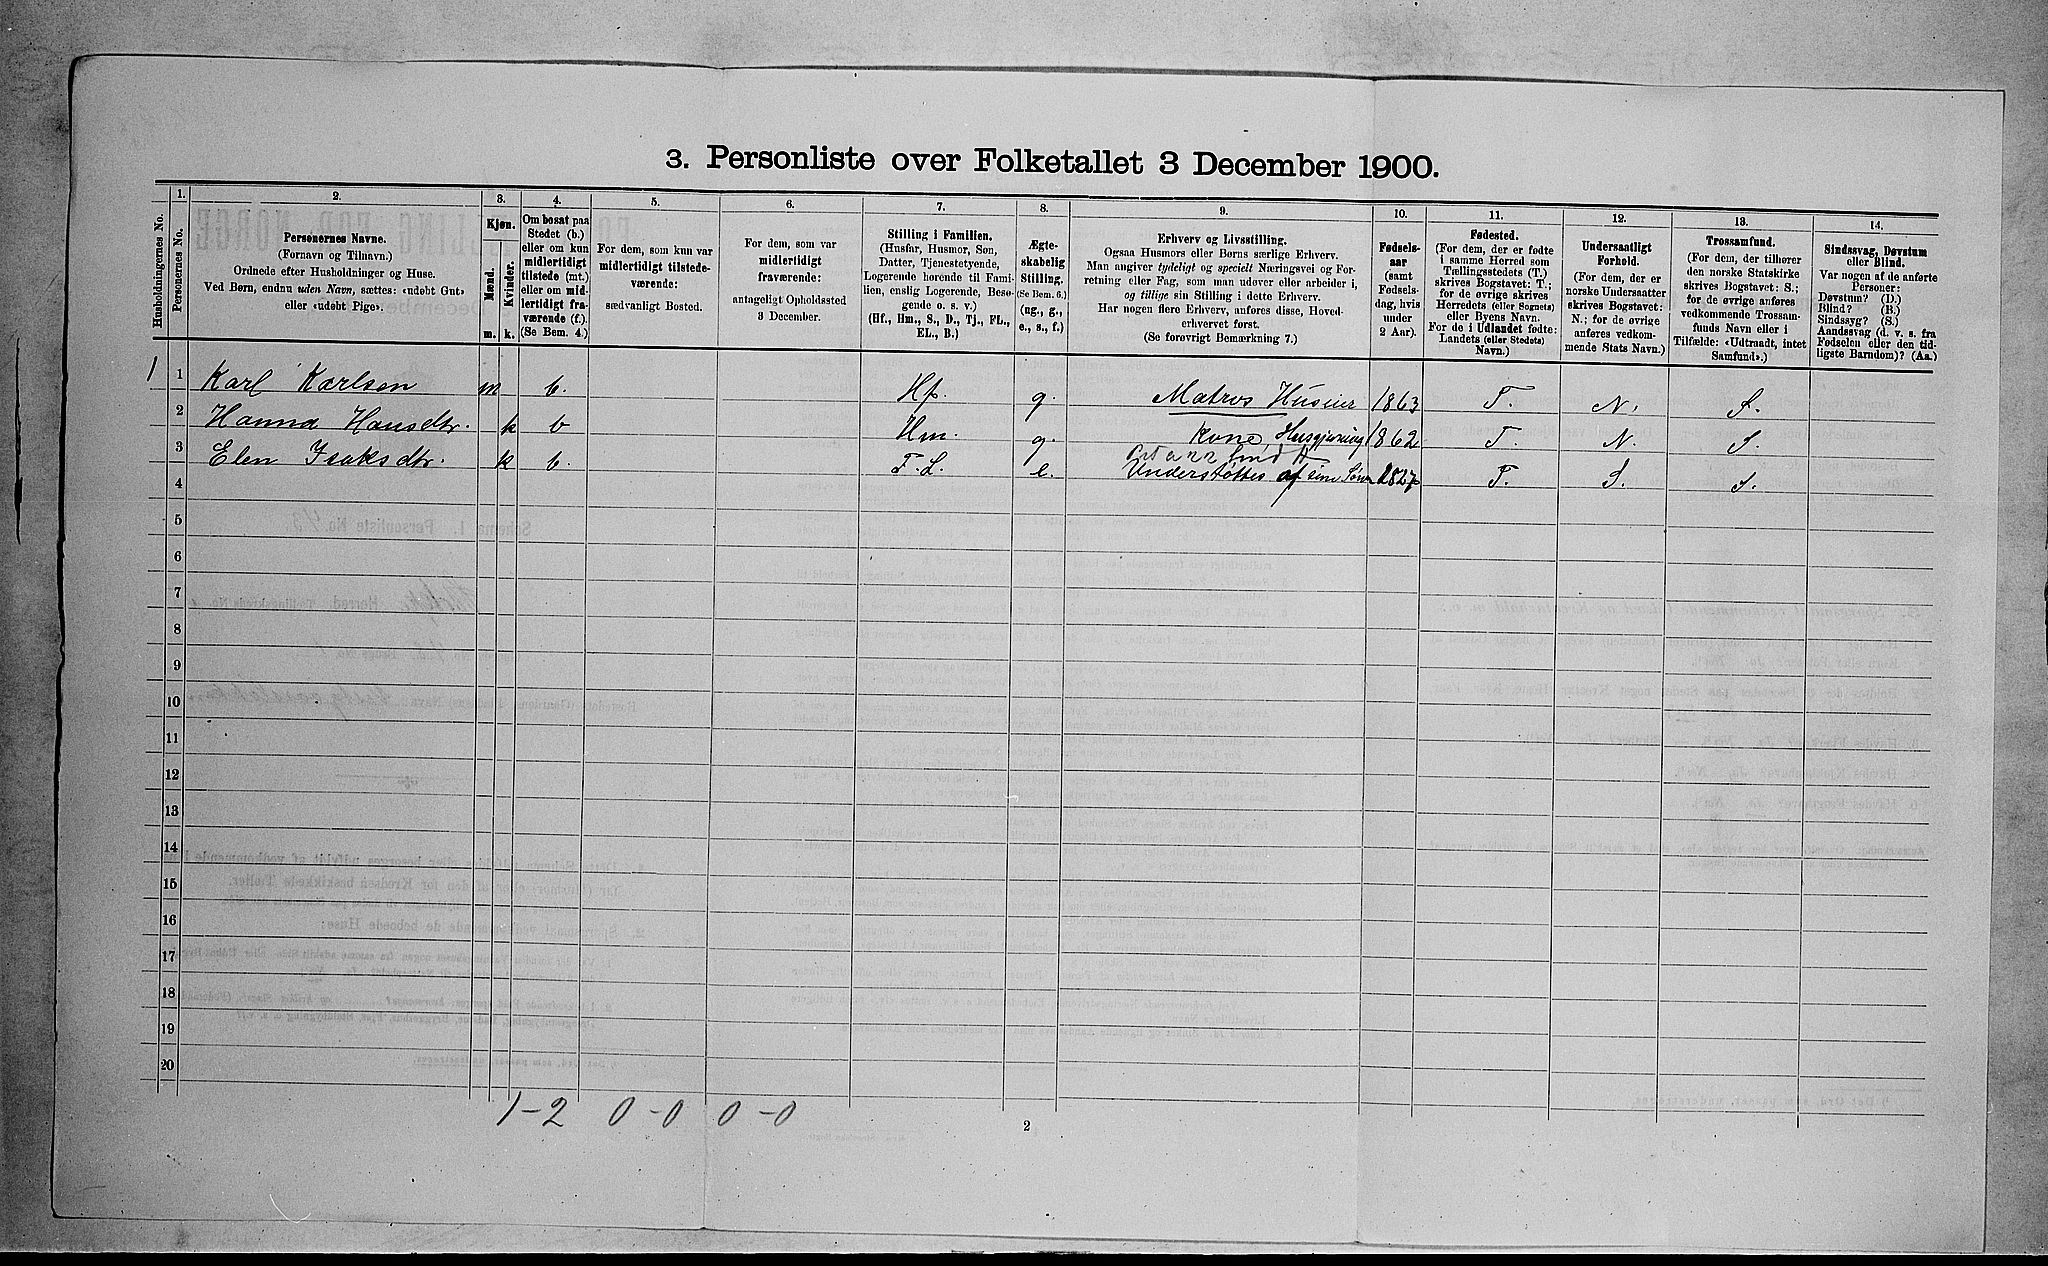 3. Personliste over Folketallet 3 December 1900.
Husholdningernes No.
1. Personernes No.
2. Personernes Navne.
(Fornavn og Tilnavn.)
Ordnede efter Husholdninger og Huse.
Ved Børn, endnu uden Navn, sættes: «udøbt Gut»
eller «udøbt Pige».
3. Kjøn.
Mænd. m.
Kvinder. k.
4. Om bosat paa
Stedet (b.)
eller om kun
midlertidigt
tilstede (mt.)
eller om mid-
lertidigt fra-
værende (f.).
(Se Bem. 4.)
5. For dem, som kun var
midlertidigt tilstede-
værende:
sædvanligt Bosted.
6. For dem, som var
midlertidigt
fraværende:
antageligt Opholdssted
3 December.
7. Stilling i Familien.
(Husfar, Husmor, Søn,
Datter, Tjenestetyende,
Logerende hørende til Fami-
lien, enslig Logerende, Besø-
gende o. s. v.)
(Hf., Hm., S., D., Tj., FL.,
EL., B.)
8. Ægte-
skabelig
Stilling.
(Se Bem. 6.)
(ug., g.,
e., s., f.)
9. Erhverv og Livsstilling.
Ogsaa Husmors eller Børns særlige Erhverv.
Man angiver tydeligt og specielt Næringsvei og For-
retning eller Fag, som man udøver eller arbeider i,
og tillige sin Stilling i dette Erhverv.
Har nogen flere Erhverv, anføres disse, Hoved-
erhvervet først.
(Se forøvrigt Bemærkning 7.)
10. Fødsels-
aar
(samt
Fødsels-
dag, hvis
under
2 Aar).
11. Fødested.
(For dem, der er fødte
i samme Herred som
Tællingsstedets (T.)
skrives Bogstavet: T.;
for de øvrige skrives
Herredets (eller Sognets)
eller Byens Navn.
For de i Udlandet fødte:
Landets (eller Stedets)
Navn.)
12. Undersaatligt
Forhold.
(For dem, der er
norske Undersaatter
skrives Bogstavet:
N.; for de øvrige
anføres vedkom-
mende Stats Navn.)
13. Trossamfund.
(For dem, der tilhører
den norske Statskirke
skrives Bogstavet: S.;
for de øvrige anføres
vedkommende Trossam-
funds Navn eller i
Tilfælde: «Udtraadt, intet
Samfund».)
14. Sindssvag, Døvstum
eller Blind.
Var nogen af de anførte
Personer:
Døvstum? (D.)
Blind? (B.)
Sindssyg? (S.)
Aandssvag (d. v. s. fra
Fødselen eller den tid-
ligste Barndom)? (Aa.)
1 1 Karl Karlsen m b. Hf. g. Matros Huseier 1863 T. N. S.
2 Hanna Hansdtr. k b Hm. g. Kone, Husgjerning 1862 T. N. S.
3 Elen Isaksdtr. k b. F. L. e. Understøttes af sine Sønner 1827 T. S. S.
4
5
6
7
8
9
10
11
12
13
14
15
16
17
18
19
20
1-2 0-0 0-0
2